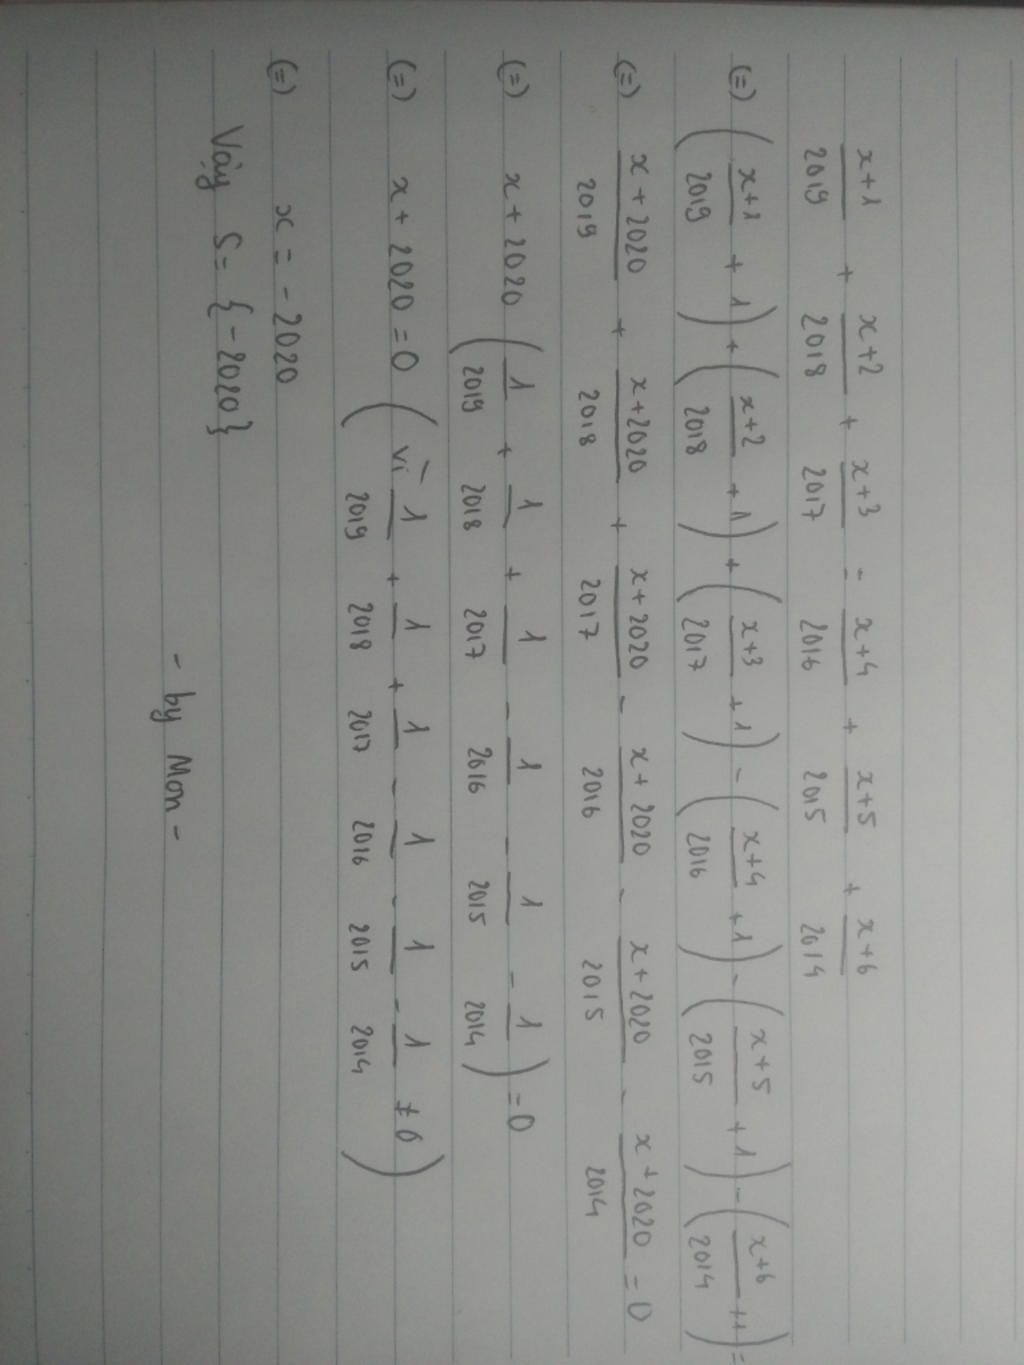 x+1/2019 + x+2/2018 + x+3/2017 - x+4/2016 + x+5/2015 + x+6/2014
(=) (x+1/2019 + 1) + (x+2/2018 + 1) + (x+3/2017 + 1) - (x+4/2016 + 1) - (x+5/2015 + 1) - (x+6/2014 + 1) =
(=) x+2020/2019 + x+2020/2018 + x+2020/2017 - x+2020/2016 - x+2020/2015 - x+2020/2014 = 0
(=) x+2020 (1/2019 + 1/2018 + 1/2017 - 1/2016 - 1/2015 - 1/2014) = 0
(=) x+2020 = 0 (vì 1/2019 + 1/2018 + 1/2017 - 1/2016 - 1/2015 - 1/2014 ≠ 0)
(=) x = -2020
Vậy S = {-2020}
- by Mon -